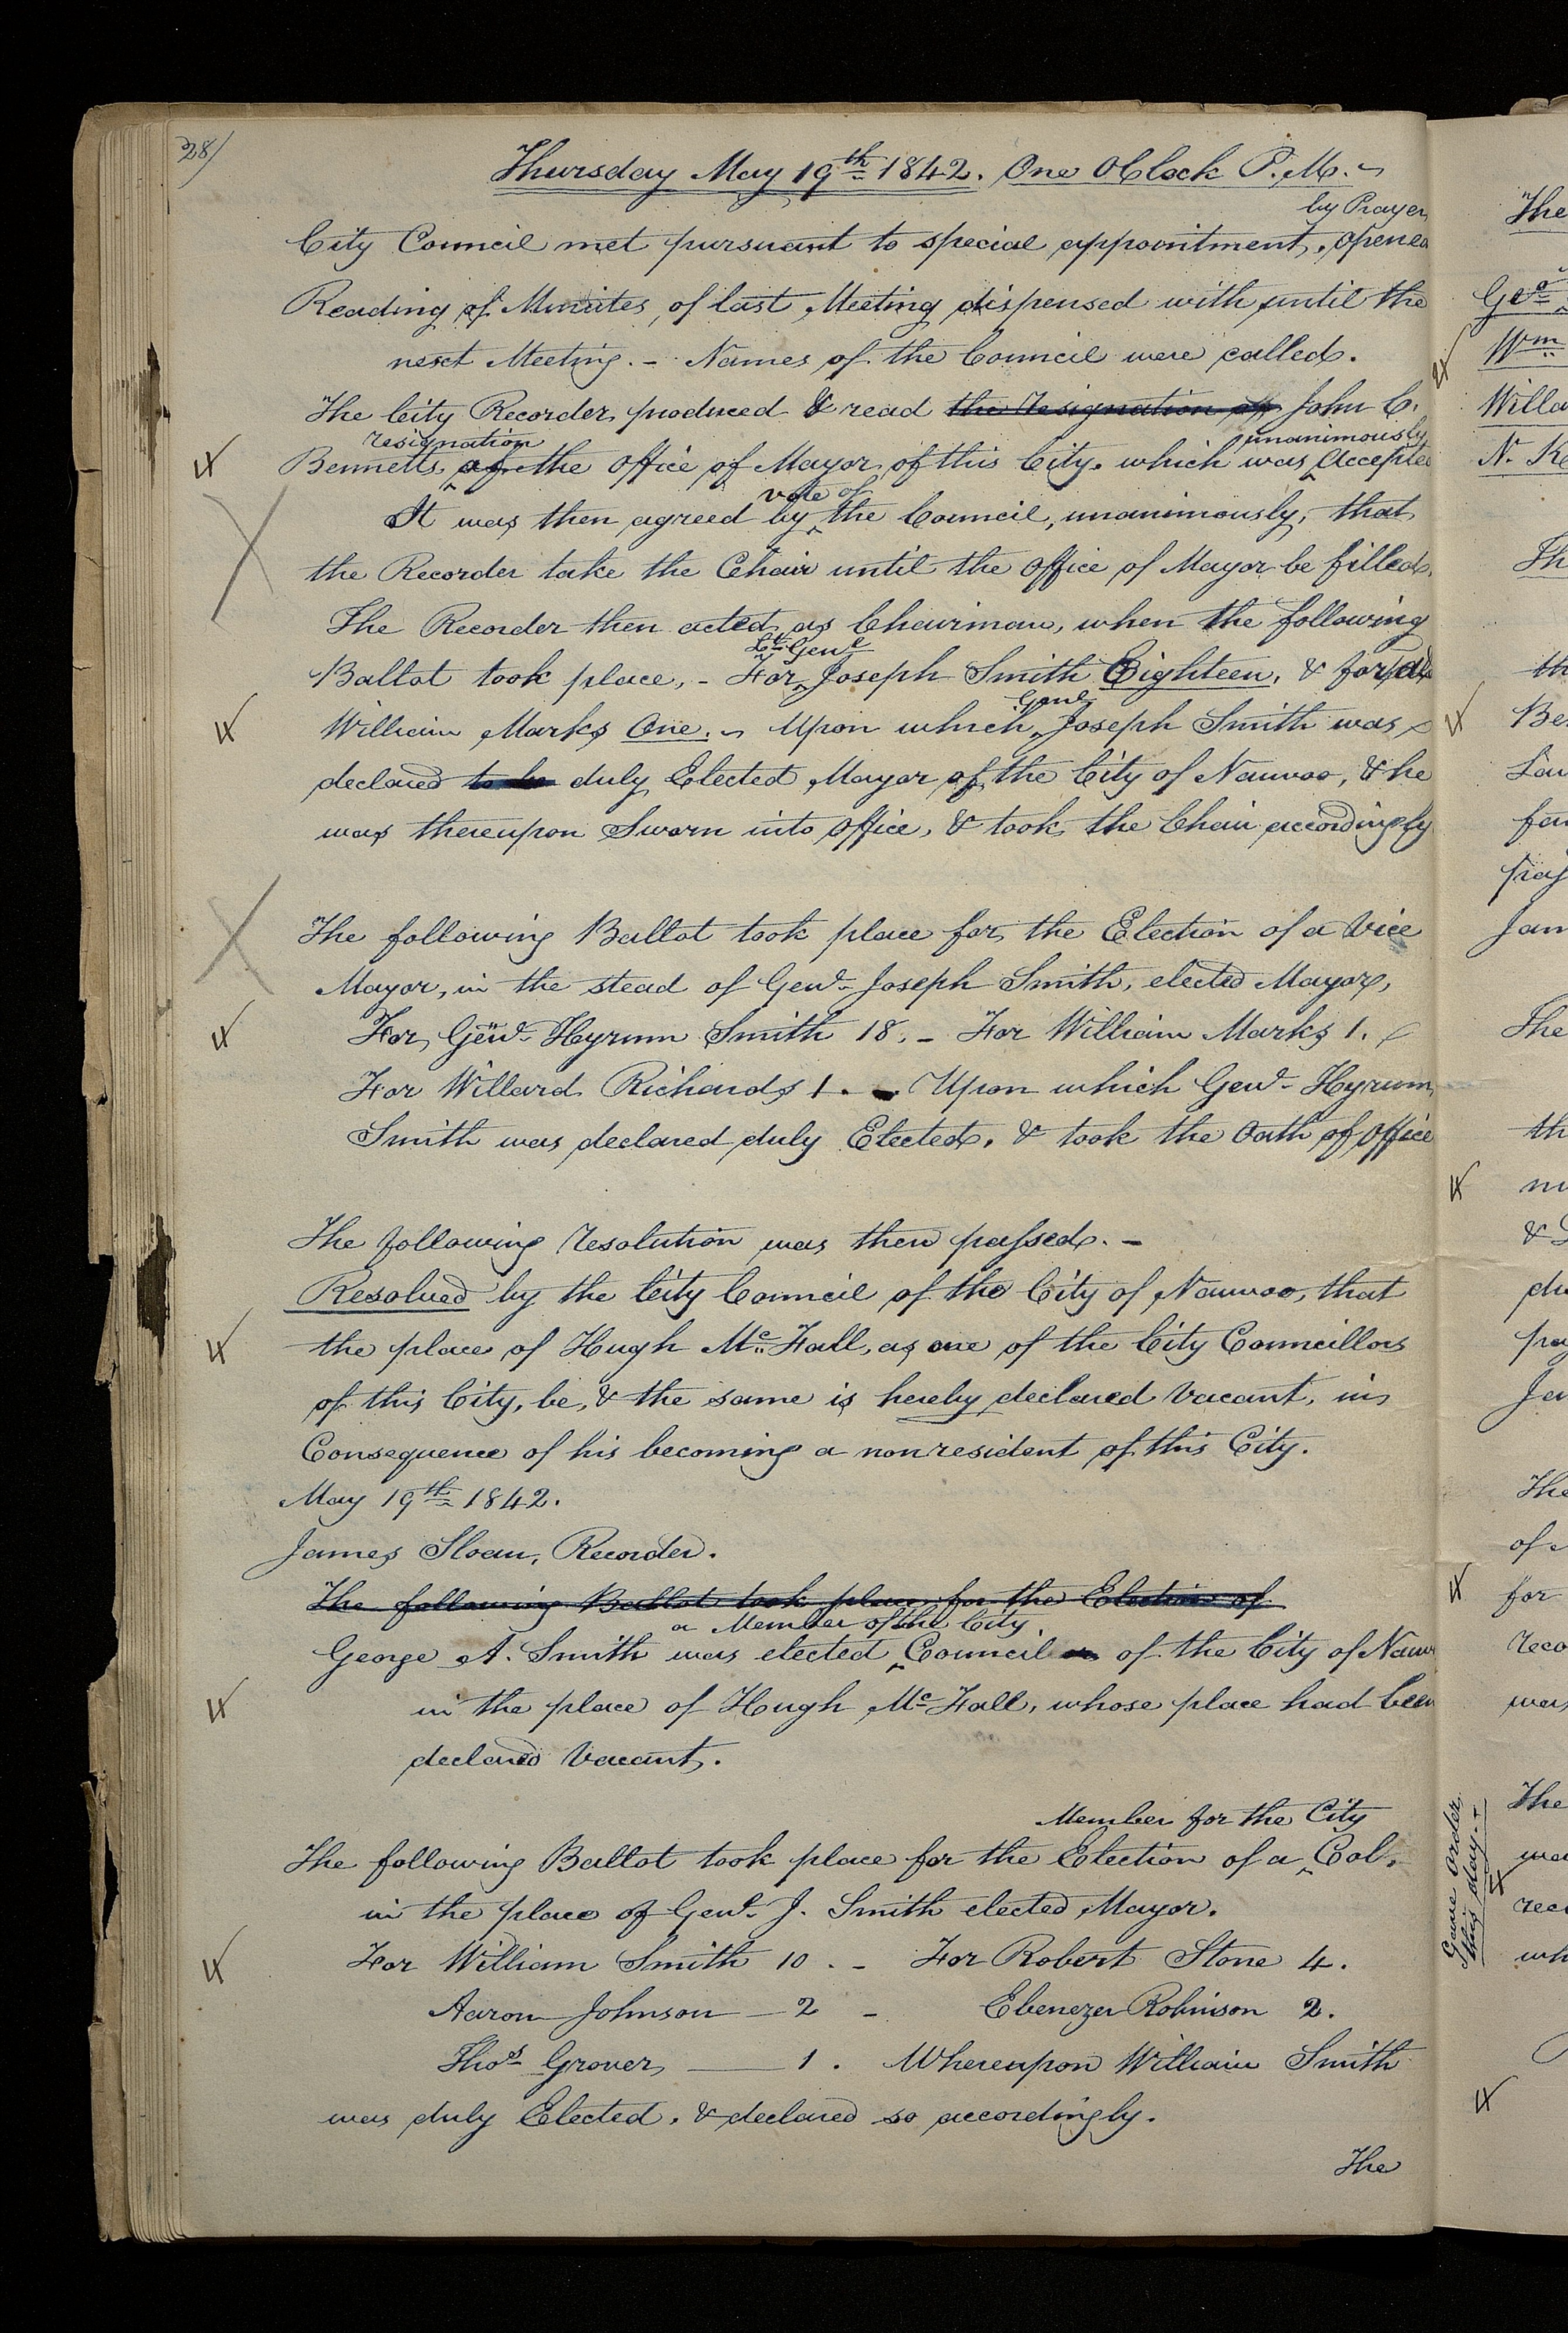 28/
Thursday May 19th 1842. One OClock P.M.
by Prayer
City Council met pursuant to special appointment, opened
Reading of Minutes, of last Meeting dispensed with until the
next Meeting. - Names of the Council were called.
The City Recorder produced & read the resignation of John C.
resignation unanimously
Bennetts, of the office of Mayor of this City, which was accepted
vote of
It was then agreed by the Council, unanimously, that
the Recorder take the Chair until the office of Mayor be filled.
The Recorder then acted as Chairman, when the following
Lt. Genl
Ballot took place, - For Joseph Smith Eighteen, & for
Genl
William Marks One. Upon which Joseph Smith was
declared to be duly Elected Mayor of the City of Nauvoo, & he
was thereupon Sworn into office, & took the Chair accordingly
The following Ballot took place for the Election of a Vice
Mayor, in the stead of Genl. Joseph Smith, elected Mayor,
For Genl. Hyrum Smith 18. - For William Marks 1.
For Willard Richards 1. - Upon which Genl. Hyrum
Smith was declared duly Elected, & took the Oath of office
The following resolution was then passed. -
Resolved by the City Council of the City of Nauvoo, that
the place of Hugh Mc. Fall, as one of the City Councillors
of this City, be, & the same is hereby declared Vacant, in
Consequence of his becoming a nonresident of this City.
May 19th 1842.
James Sloan, Recorder.
The following Ballot took place for the Election of
a Member of the City
George A. Smith was elected Council of the City of Nauv
in the place of Hugh Mc Fall, whose place had been
declared Vacant.
Member for the City
The following Ballot took place for the Election of a Col.
in the place of Genl. J. Smith elected Mayor.
For William Smith 10. - For Robert Stone 4.
Aaron Johnson - 2 - Ebenezer Robinson 2.
Thos. Grover, — 1. Whereupon William Smith
was duly Elected, & declared so accordingly.
The
The
Geo.
Wm
Willa
N. K
Th
th
Be
Lau
for
pray
Jam
The
th
&
du
pray
Ja
The
of
for
reco
was
Same order
this day. -
The
was
reco
wh